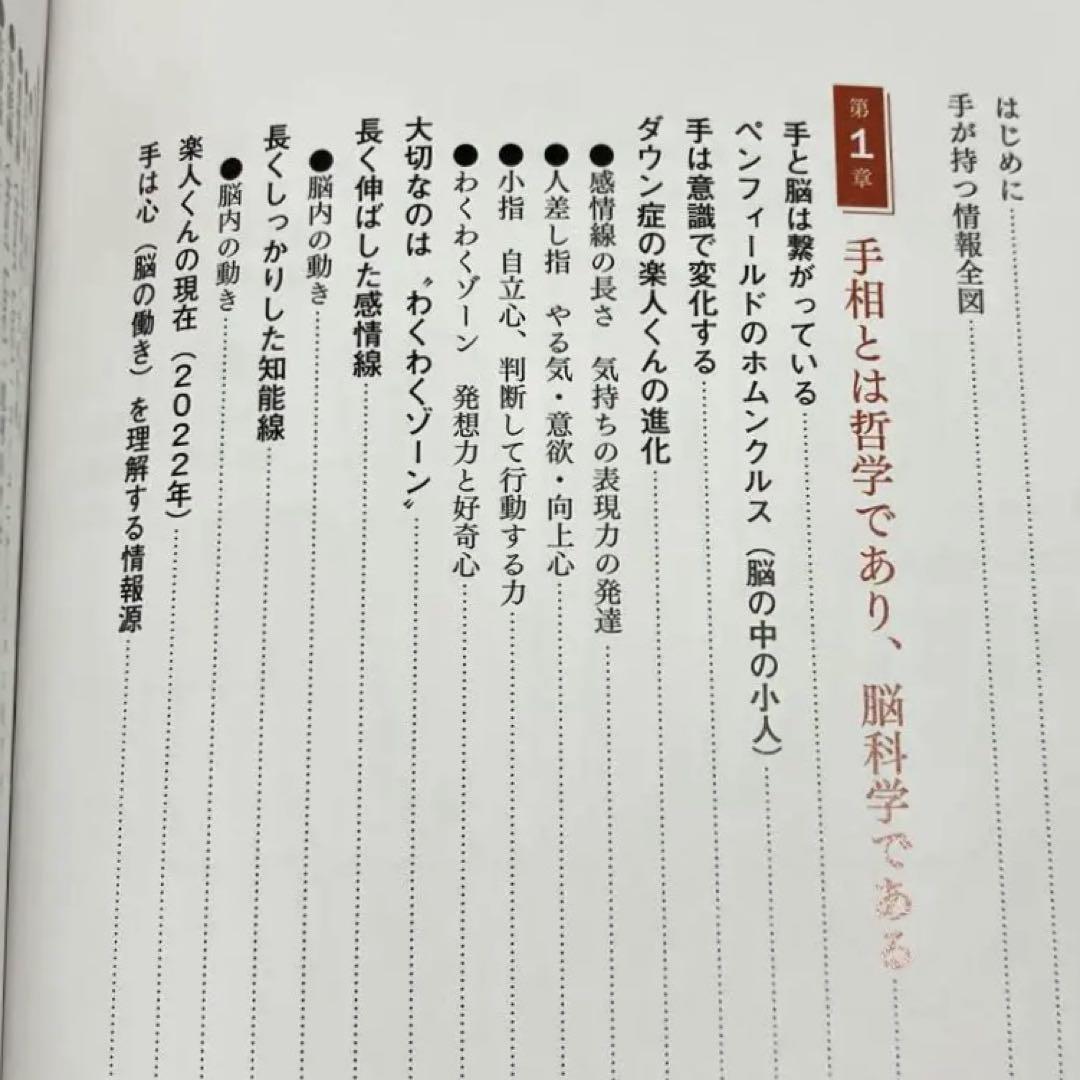 はじめに
手が持つ情報全図
第1章 手相とは哲学であり、脳科学である
手と脳は繋がっている
ペンフィールドのホムンクルス（脳の中の小人）
手は意識で変化する
ダウン症の楽人くんの進化
●感情線の長さ 気持ちの表現力の発達
●人差し指 やる気・意欲・向上心
●小指 自立心、判断して行動する力
●わくわくゾーン 発想力と好奇心
大切なのは〝わくわくゾーン〟
長く伸ばした感情線
●脳内の動き
長くしっかりした知能線
●脳内の動き
楽人くんの現在（2022年）
手は心（脳の働き）を理解する情報源